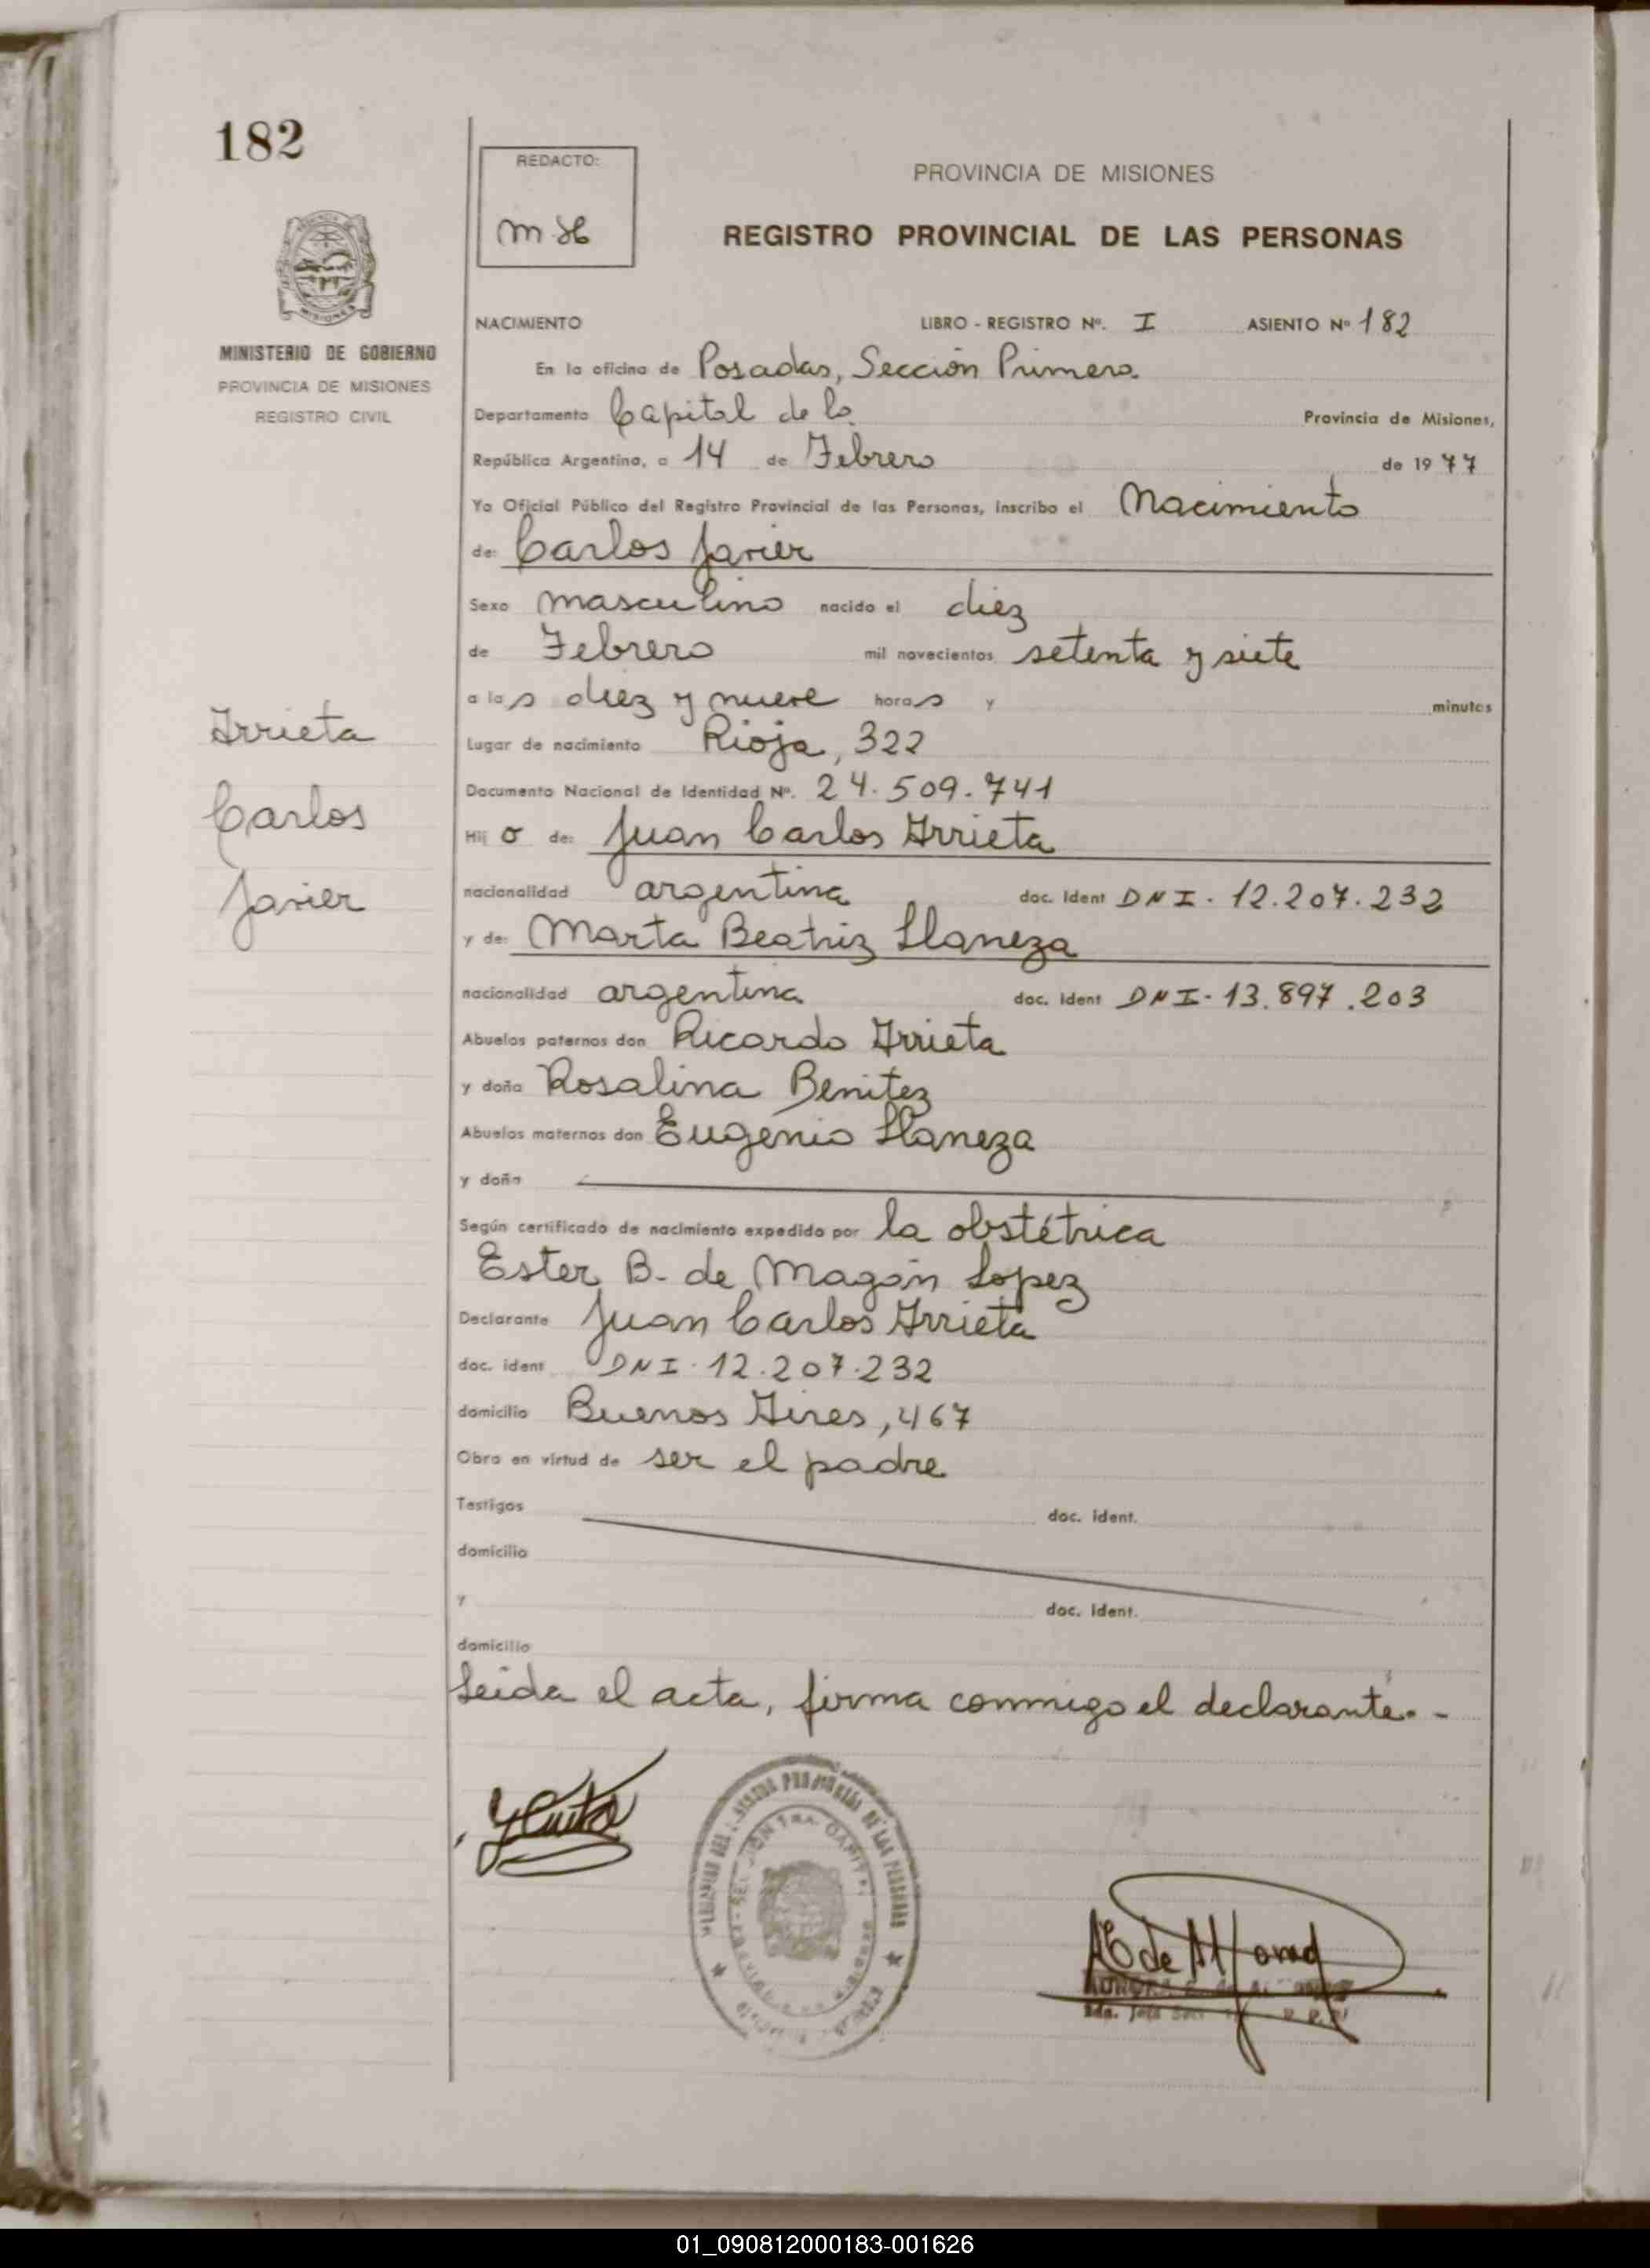 182
REDACTO:
MH
PROVINCIA DE MISIONES
REGISTRO PROVINCIAL DE LAS PERSONAS
MISIONES
MINISTERIO DE GOBIERNO
PROVINCIA DE MISIONES
REGISTRO CIVIL
NACIMIENTO LIBRO - REGISTRO Nº. I ASIENTO Nº 182
En la oficina de Posadas, Sección Primera
Departamento Capital de la Provincia de Misiones,
República Argentina, a 14 de Febrero de 1977
Yo Oficial Público del Registro Provincial de las Personas, inscribo el Nacimiento
de: Carlos Javier
Sexo masculino nacido el diez
de Febrero mil novecientos setenta y siete
a las diez y nueve horas y minutos
Lugar de nacimiento Rioja, 322
Documento Nacional de Identidad Nº. 24.509.741
Hijo de: Juan Carlos Arrieta
nacionalidad argentina doc. ident DNI. 12.207.232
y de: Marta Beatriz Llaneza
nacionalidad argentina doc. ident DNI. 13.897.203
Abuelos paternos don Ricardo Arrieta
y doña Rosalina Benitez
Abuelos maternos don Eugenio Llaneza
y doña
Según certificado de nacimiento expedido por la obstétrica
Ester B. de Magán Lopez
Declarante Juan Carlos Arrieta
doc. ident DNI. 12.207.232
domicilio Buenos Aires, 467
Obra en virtud de ser el padre
Testigos doc. ident.
domicilio
y doc. ident.
domicilio
Leida el acta, firma conmigo el declarante. -
Arrieta
Carlos
Javier
01_090812000183-001626